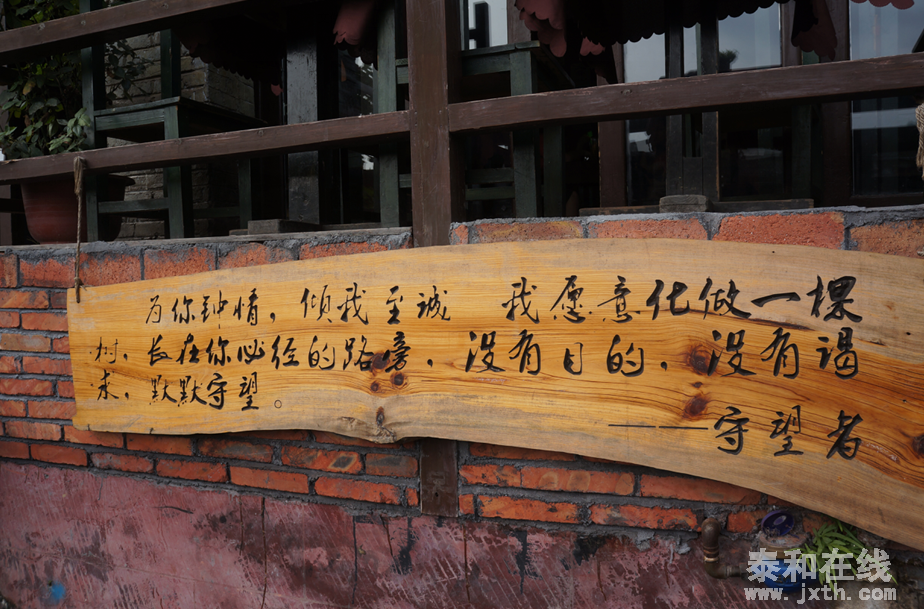 为你钟情，倾我至诚 我愿意化做一棵
树，长在你必经的路旁，没有目的，没有谒
求，默默守望。
——守望者
泰和在线
www.jxth.com